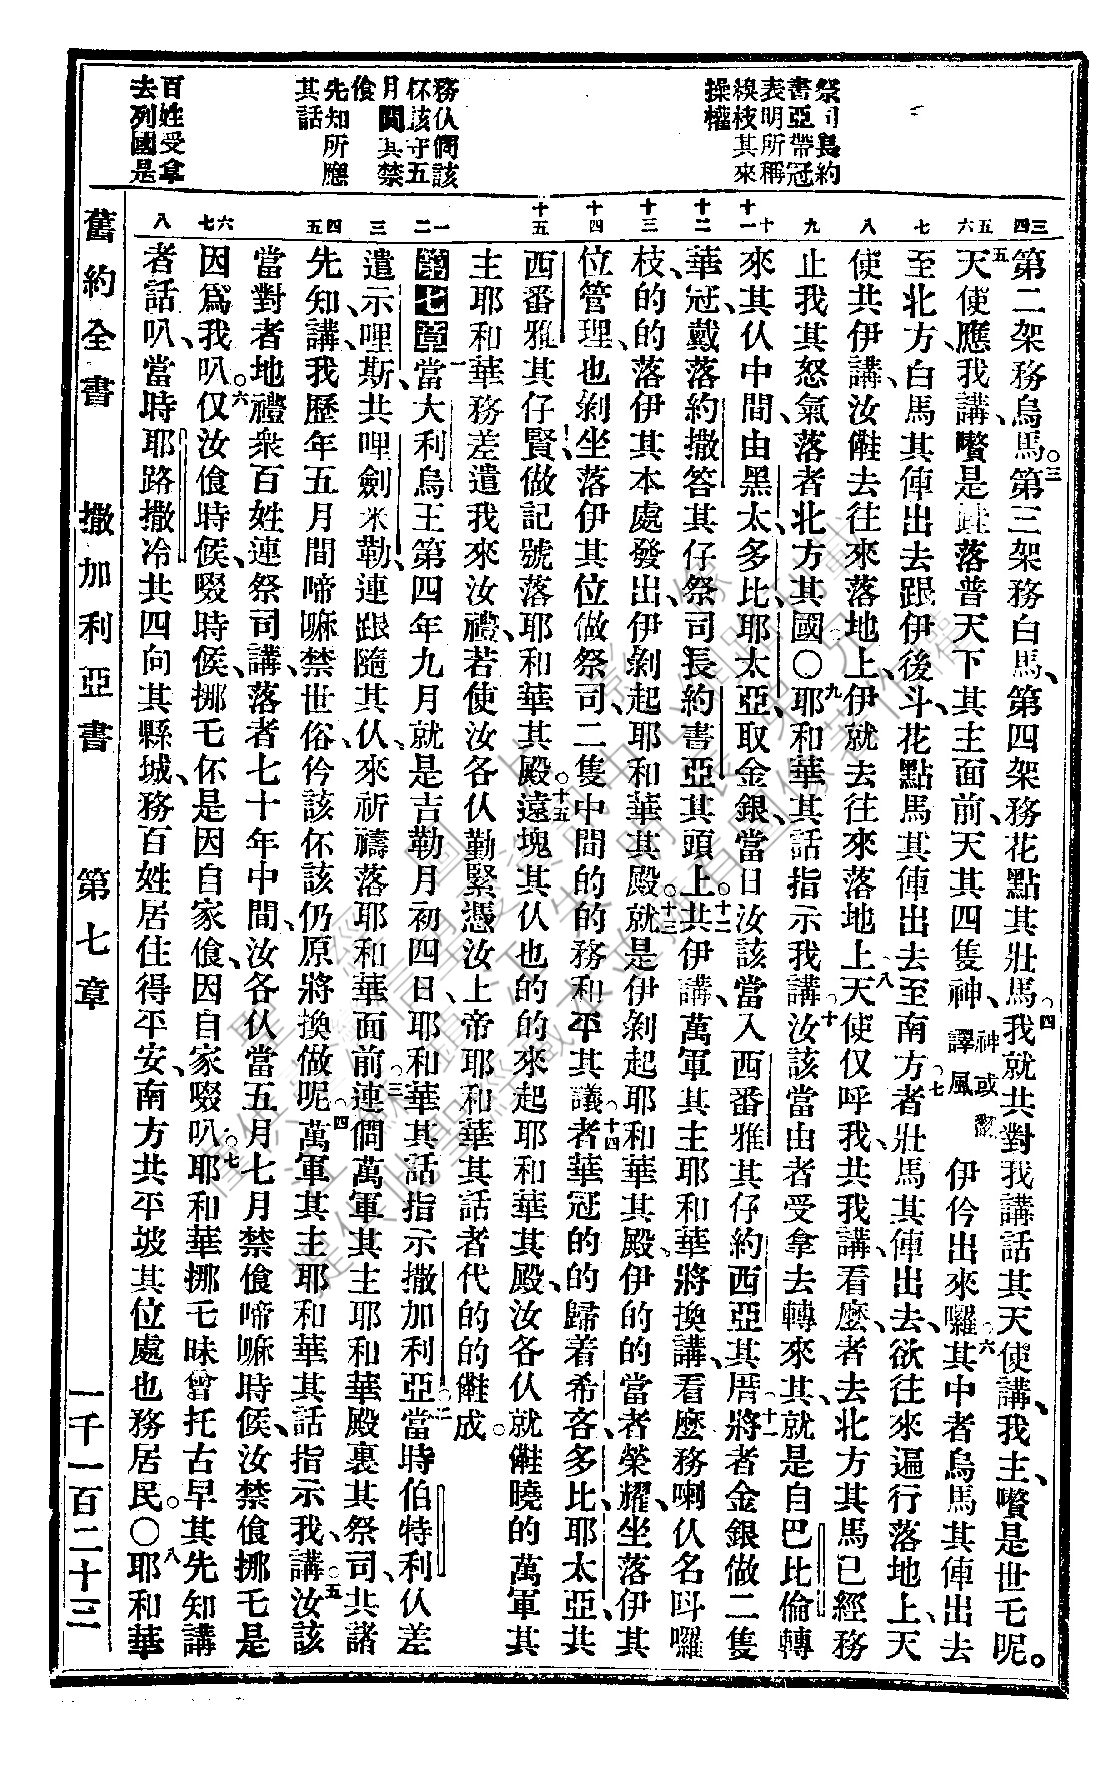 祭司長約
書亞帶冠
表明所稱
穆枝其來
操權
務仈㒇該
伓該守五
月間其禁
食
先知所應
其話
百姓受拿
去列國是
三四
五六
七
八
九
十十一
十二
十三
十四
十五
一二
三
四五
六七
八
第二架務烏馬。三第三架務白馬、第四架務花點其壯馬。四我就共對我講話其天使講、我主、嚽是世乇呢。
五天使應我講、嚽是跬落普天下其主面前、天其四隻神、神或翻譯風伊仱出來囉。六其中者烏馬其俥出去
至北方、白馬其俥出去跟伊後、斗花點馬其俥出去至南方。七者壯馬其俥出去、欲往來遍行落地上、天
使共伊講、汝㒇去往來落地上、伊就去往來落地上。八天使仅呼我、共我講、看麼、者去北方其馬已經務
止我其怒氣落者北方其國〇九耶和華其話指示我講、十汝該當由者受拿去轉來其、就是自巴比倫轉
來、其仈中間由黑太、多比、耶太亞、取金銀、當日汝該當入西番雅其仔約西亞其厝。十一將者金銀做二隻
華冠、戴落約撒答其仔祭司長約書亞其頭上。十二共伊講、萬軍其主耶和華將換講、看麼務喇仈名叫囉
枝、的的落伊其本處發出、伊剝起耶和華其殿。十三就是伊剝起耶和華其殿、伊的的當者榮耀、坐落伊其
位管理、也剝坐落伊其位做祭司、二隻中間的的務和平其議。十四者華冠的的歸着希客、多比、耶太亞、共
西番雅其仔賢、做記號落耶和華其殿。十五遠塊其仈也的的來起耶和華其殿、汝各仈就㒇曉的萬軍其
主耶和華務差遣我來汝禮、若使汝各仈勤緊憑汝上帝耶和華其話、者代的的㒇成。
第七章一當大利烏王第四年九月、就是吉勒月初四日、耶和華其話指示撒加利亞。二當時伯特利仈差
遣示哩斯共哩劍米勒、連跟隨其仈、來祈禱落耶和華面前。三連㒇萬軍其主耶和華殿裏其祭司、共諸
先知講、我歷年五月間啼嘛禁世俗、仱該伓該仍原將換做呢。四萬軍其主耶和華其話指示我講、五汝該
當對者地禮衆百姓、連祭司講、落者七十年中間、汝各仈當五月七月禁食啼嘛時候、汝禁食挪乇是
因爲我叭。六仅汝食時候、啜時候、挪乇伓是因自家食、因自家啜叭。七耶和華挪乇昧曾托古早其先知講
者話叭、當時耶路撒冷共四向其縣城、務百姓居住得平安、南方共平坡其位處也務居民。〇八耶和華
舊約全書　撒加利亞書　第七章　一千一百二十三